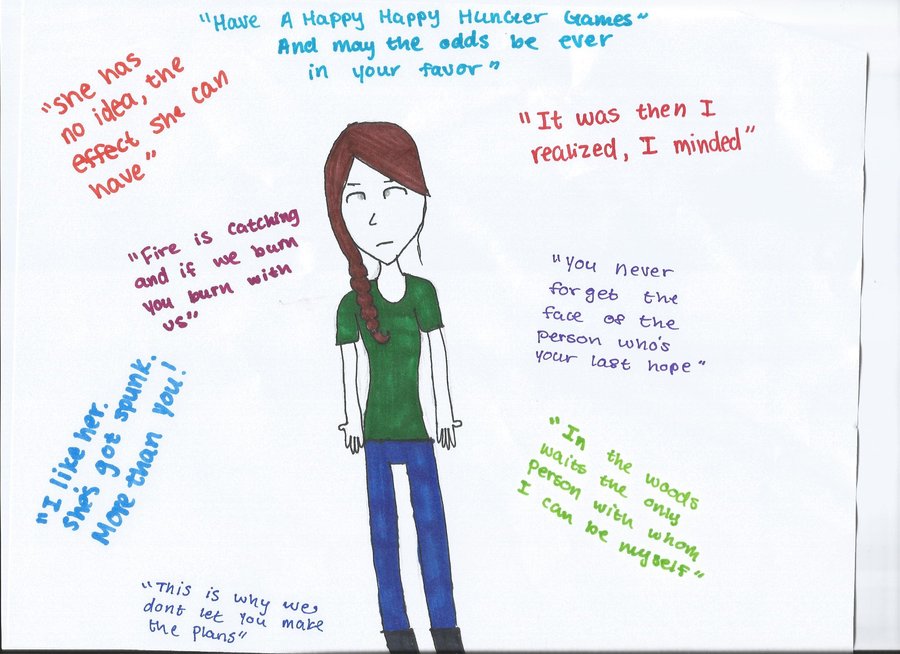 "Have A Happy Happy Hunger Games"
And may the odds be ever
in your favor"
"she has
no idea, the
effect she can
have"
"It was then I
realized, I minded"
"Fire is catching
and if we burn
you burn with
us"
"You never
forget the
face of the
person who's
your last hope"
"I like her.
she's got spunk.
More than you!
"In the woods
waits the only
person with whom
I can be myself"
"This is why we,
dont let you make
the plans"